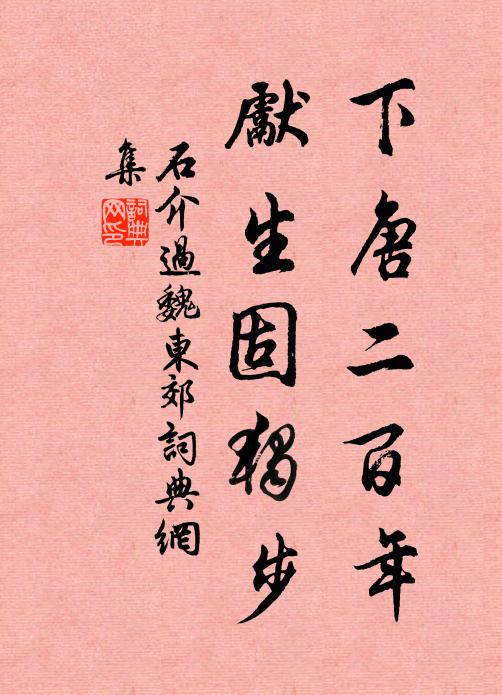 下唐二百年
獻生固獨步
石介過魏東郊詞典網
集
詞典
网印